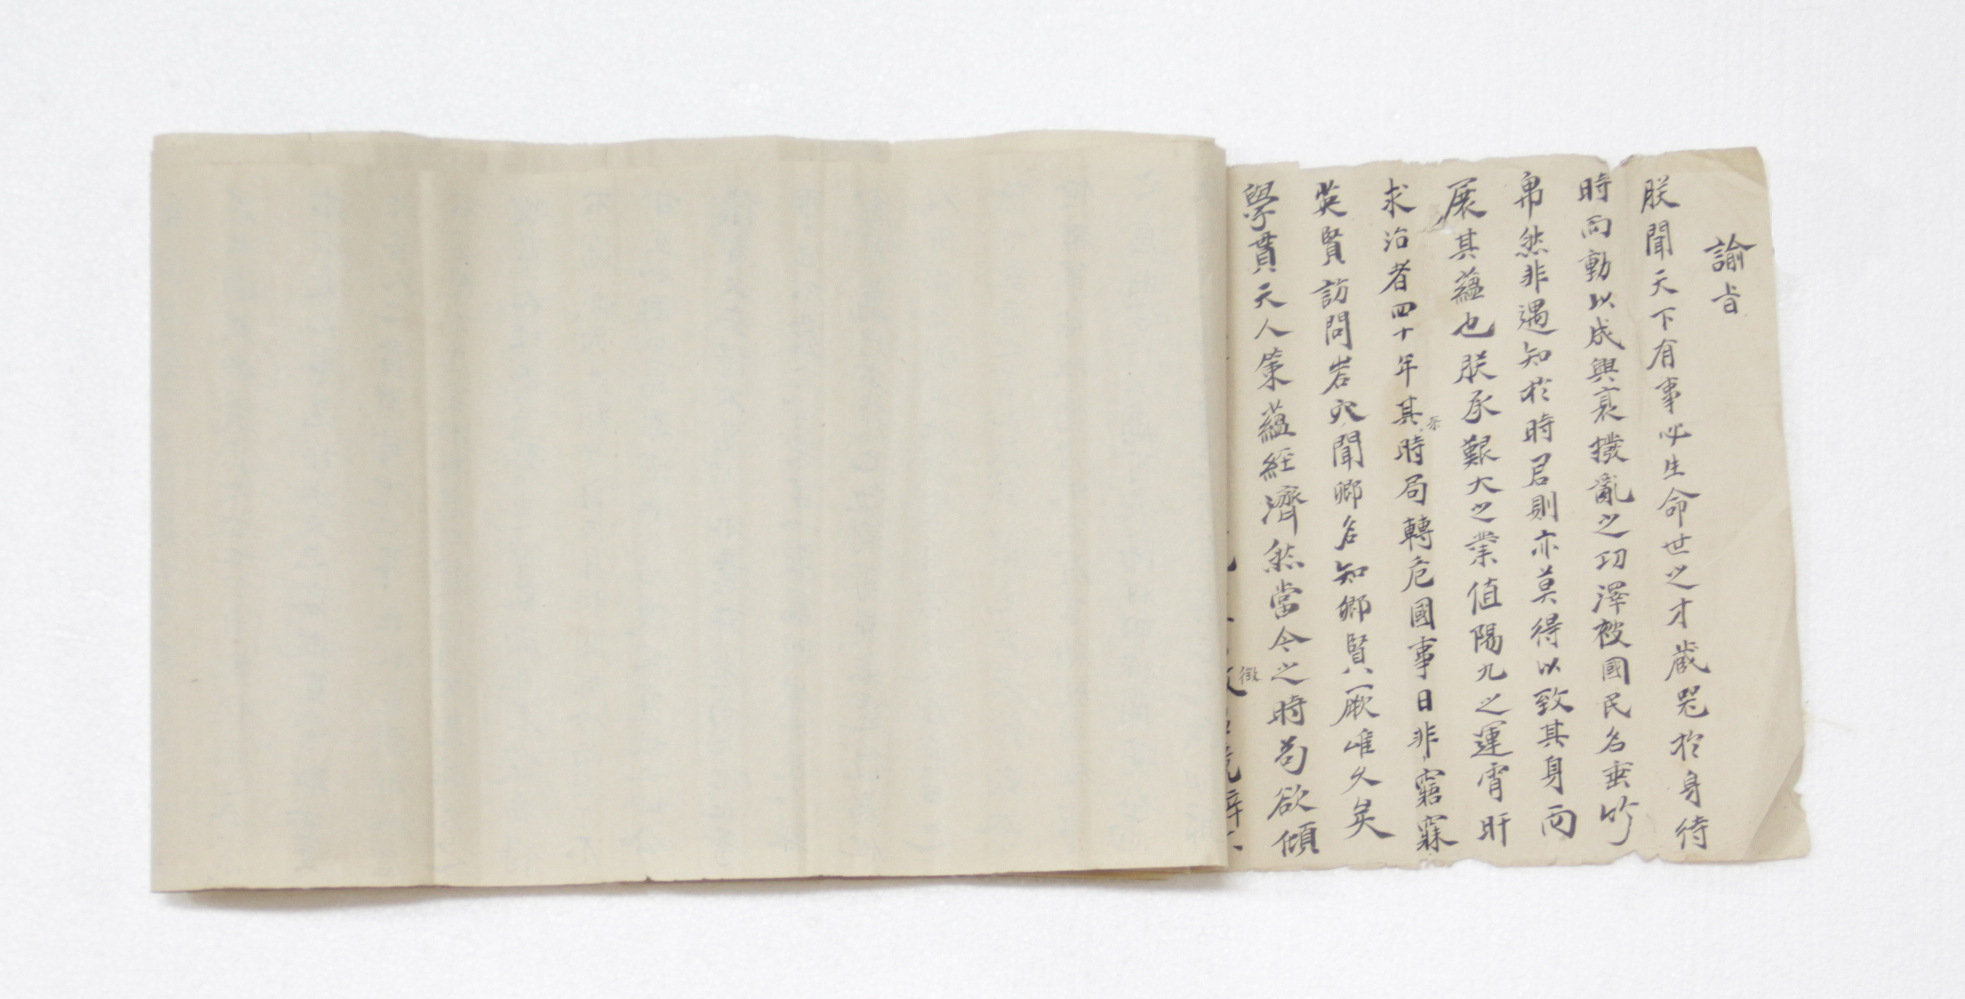 諭旨
朕聞天下有事必生命世之才蔵器於身待
時而動以成興衰撥亂之功澤被國民名垂竹
帛然非遇知於時君則亦莫得以致其身而
展其蘊也朕承艱大之業值陽九之運宵旰
求治者四十年其時局轉危國事日非寤寐
英賢訪問岩穴聞卿名知卿賢厥唯久矣
學貫天人策蘊經濟然當今之時苟欲傾